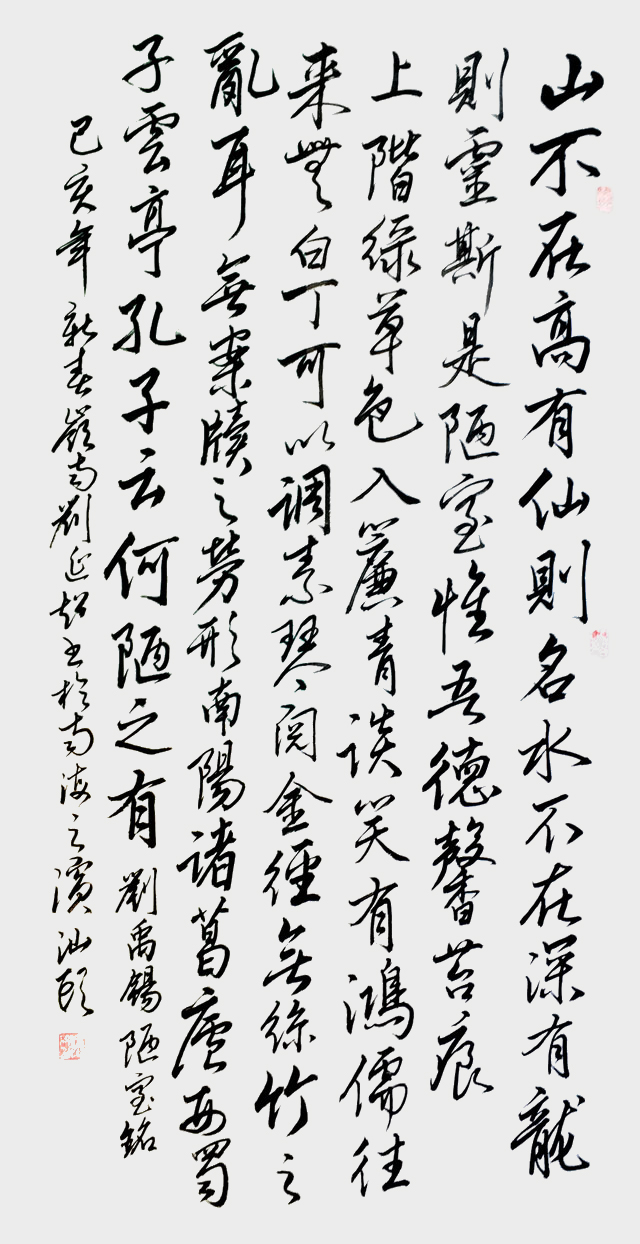 山不在高有仙則名水不在深有龍
則靈斯是陋室惟吾德馨苔痕
上階綠草色入簾青談笑有鴻儒往
来無白丁可以调素琴阅金徑無絲竹之
亂耳無案牘之勞形南陽諸葛廬西蜀
子雲亭孔子云何陋之有 劉禹錫陋室銘
己亥年新春嶺南劉延超书於南海之濱汕頭